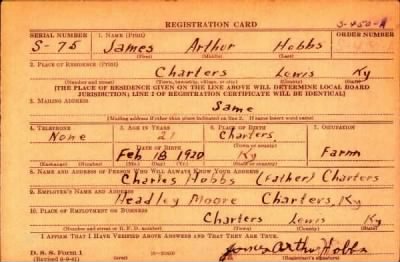 REGISTRATION CARD
SERIAL NUMBER 1. NAME (Print) ORDER NUMBER
S-75 James Arthur Hobbs S-450-A
(First) (Middle) (Last)
2. PLACE OF RESIDENCE (Print)
Charters Lewis Ky
(Number and street) (Town, township, village, or city) (County) (State)
[THE PLACE OF RESIDENCE GIVEN ON THE LINE ABOVE WILL DETERMINE LOCAL BOARD
JURISDICTION; LINE 2 OF REGISTRATION CERTIFICATE WILL BE IDENTICAL]
3. MAILING ADDRESS
Same
[Mailing address if other than place indicated on line 2. If same insert word same]
4. TELEPHONE 5. AGE IN YEARS 6. PLACE OF BIRTH 7. OCCUPATION
None 21 Charters
DATE OF BIRTH (Town or county)
Feb 18 1920 Ky Farm
(Exchange) (Number) (Mo.) (Day) (Yr.) (State or country)
8. NAME AND ADDRESS OF PERSON WHO WILL ALWAYS KNOW YOUR ADDRESS
Charles Hobbs (Father) Charters
9. EMPLOYER'S NAME AND ADDRESS
Headley Moore Charters, Ky
10. PLACE OF EMPLOYMENT OR BUSINESS
Charters Lewis Ky
(Number and street or R. F. D. number) (Town) (County) (State)
I AFFIRM THAT I HAVE VERIFIED ABOVE ANSWERS AND THAT THEY ARE TRUE.
D. S. S. Form 1 James Arthur Hobbs